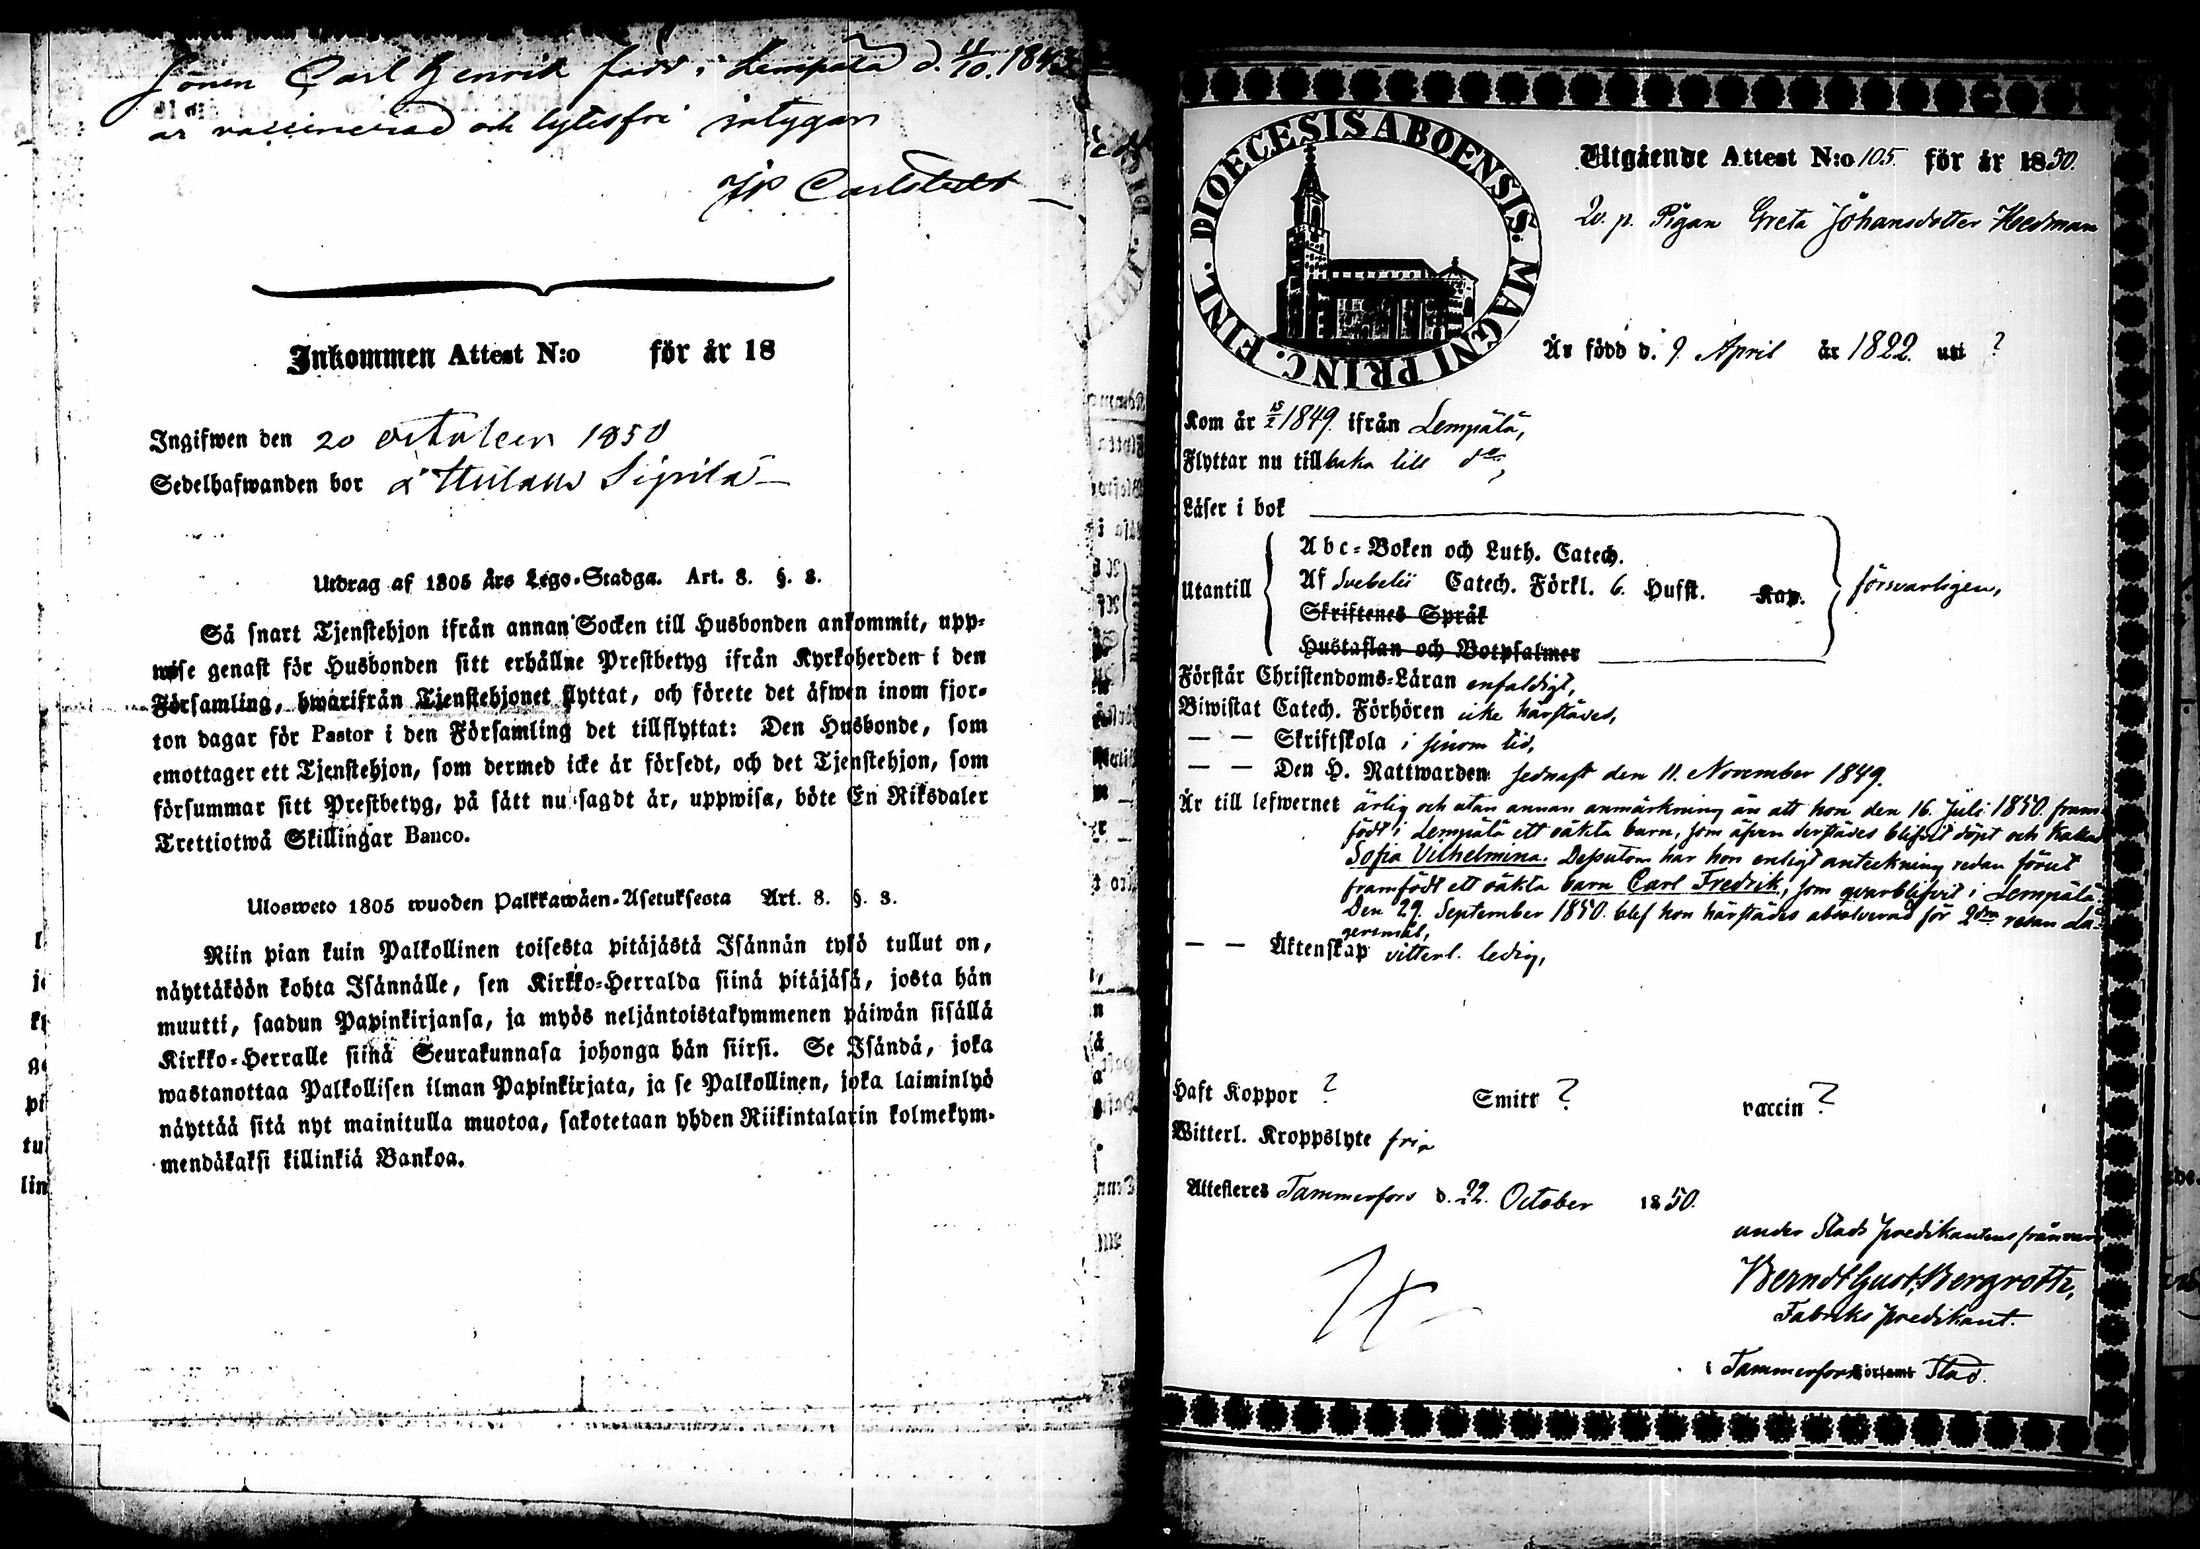 Sonen Carl Henrik född i Lempälä d. 11/10. 1843
är vaccinerad och lytesfri intygar
JP Carlstedt
Inkommen Attest N:o för år 18
Ingifwen den 20 october 1850
Sedelhafwanden bor å Sipilä
Utdrag af 1805 års Lego-Stadga. Art. 8. §. 3.
Så snart Tjenstehjon ifrån annan Socken till Husbonden ankommit, upp-
wise genast för Husbonden sitt erhållne Prestbetyg ifrån Kyrkoherden i den
Församling, hwarifrån Tjenstehjonet flyttat, och förete det äfwen inom fjor-
ton dagar för Pastor i den Församling det tillflyttat: Den Husbonde, som
emottager ett Tjenstehjon, som dermed icke är försedt, och det Tjenstehjon, som
försummar sitt Prestbetyg, på sätt nu sagdt är, uppwisa, böte En Riksdaler
Trettiotwå Skillingar Banco.
Ulosweto 1805 wuoden Palkkawäen-Asetuksesta Art. 8. §. 3.
Niin pian kuin Palkollinen toisesta pitäjästä Isännän tykö tullut on,
näyttäköön kohta Isännälle, sen Kirkko-Herralda siinä pitäjäsä, josta hän
muutti, saadun Papinkirjansa, ja myös neljäntoistakymmenen päiwän sisällä
Kirkko-Herralle siinä Seurakunnasa johonga hän siirsi. Se Isändä, joka
wastanottaa Palkollisen ilman Papinkirjata, ja se Palkollinen, joka laiminlyö
näyttää sitä nyt mainitulla muotoa, sakotetaan yhden Riikintalarin kolmekym-
mendäkaksi killinkiä Bankoa.
DIOECESIS ABOENSIS. MAGNI PRINC. FINL.
Utgående Attest N:o 105. för år 1850.
Qv. p. Pigan Greta Johansdotter Hedman
Är född d. 9. April år 1822. uti ?
Kom år 15/2 1849. ifrån Lempälä,
Flyttar nu tillbaka till do,
Läser i bok
Utantill
Abc-Boken och Luth. Catech.
Af Svebelii Catech. Förkl. 6. Hufst. Kap.
Skriftenes Språk
Hustaflan och Botpsalmer
försvarligen,
Förstår Christendoms-Läran enfaldigt,
Biwistat Catech. Förhören icke härstädes,
— — Skriftskola i sinom tid,
— — Den H. Nattwarden sednast den 11. November 1849.
Är till lefwernet ärlig och utan annan anmärkning än att hon den 16. Juli 1850. fram-
födt i Lempälä ett oäkta barn, som äfven derstädes blifvit döpt och kallad
Sofia Vilhelmina. Dessutom har hon enligt anteckning redan förut
framfödt ett oäkta barn Carl Fredrik, som qvarblifvit i Lempälä.
Den 29. September 1850. blef hon härstädes absolverad för 2dra resan lä-
gersmål,
— — Äktenskap vitterl. ledig,
Haft Koppor ? Smitt ? vaccin ?
Witterl. Kroppslyte fri,
Attesteres Tammerfors d. 22. October 1850.
under Stads predikantens frånvaro
Berndt Gust. Bergroth,
Fabriks predikant.
i Tammerfors Församl Stad.